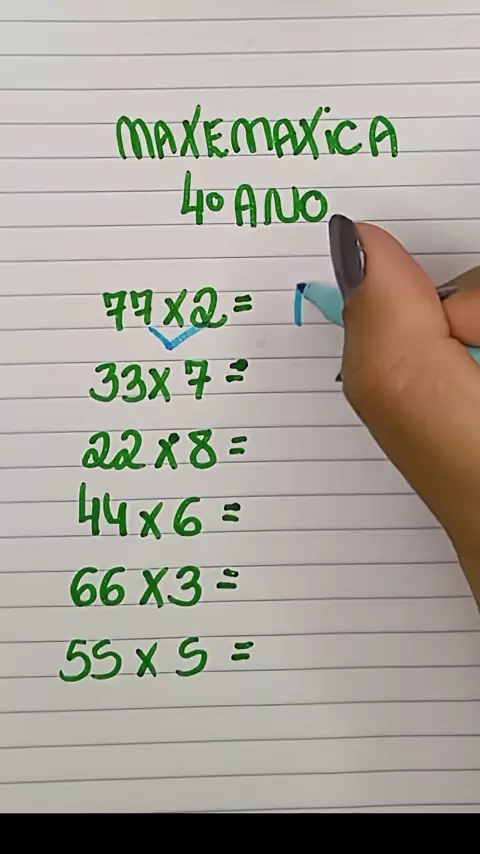 MATEMATICA
4º ANO
77 x 2 =
33 x 7 =
22 x 8 =
44 x 6 =
66 x 3 =
55 x 5 =